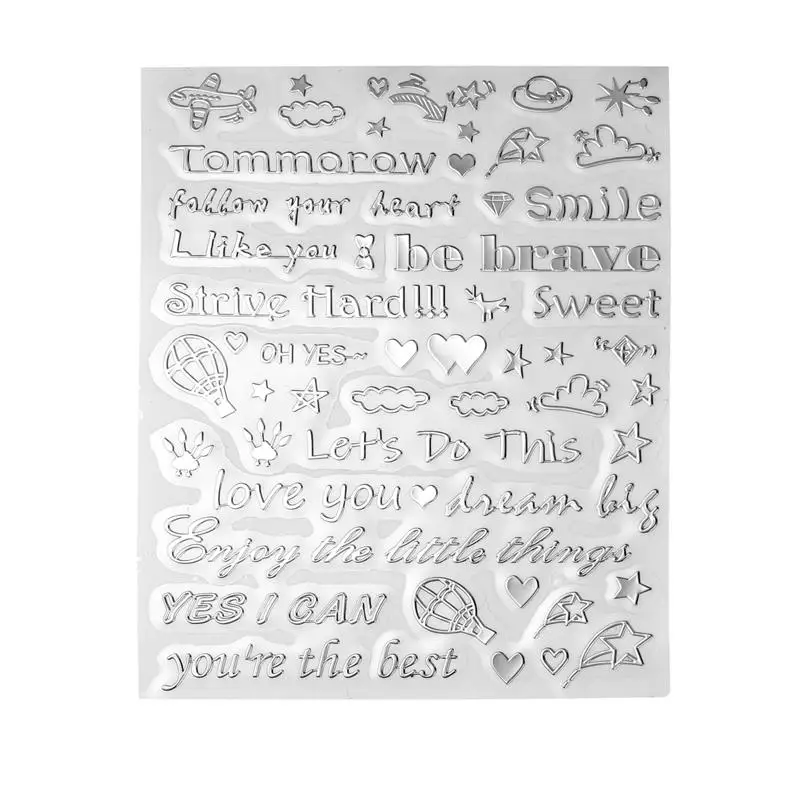 Tommorow
follow your heart
Smile
L like you
be brave
Strive Hard!!!
Sweet
OH YES~
Let's Do This
love you
dream big
Enjoy the little things
YES I CAN
you're the best